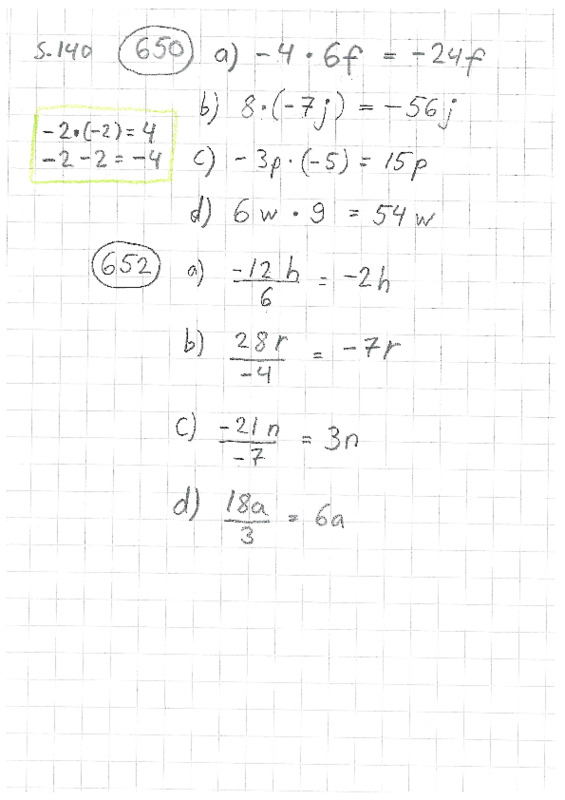 s. 140 650 a) -4 · 6f = -24f
b) 8 · (-7j) = -56j
-2 · (-2) = 4
-2 - 2 = -4
c) -3p · (-5) = 15p
d) 6w · 9 = 54w
652 a) -12h/6 = -2h
b) 28r/-4 = -7r
c) -21n/-7 = 3n
d) 18a/3 = 6a